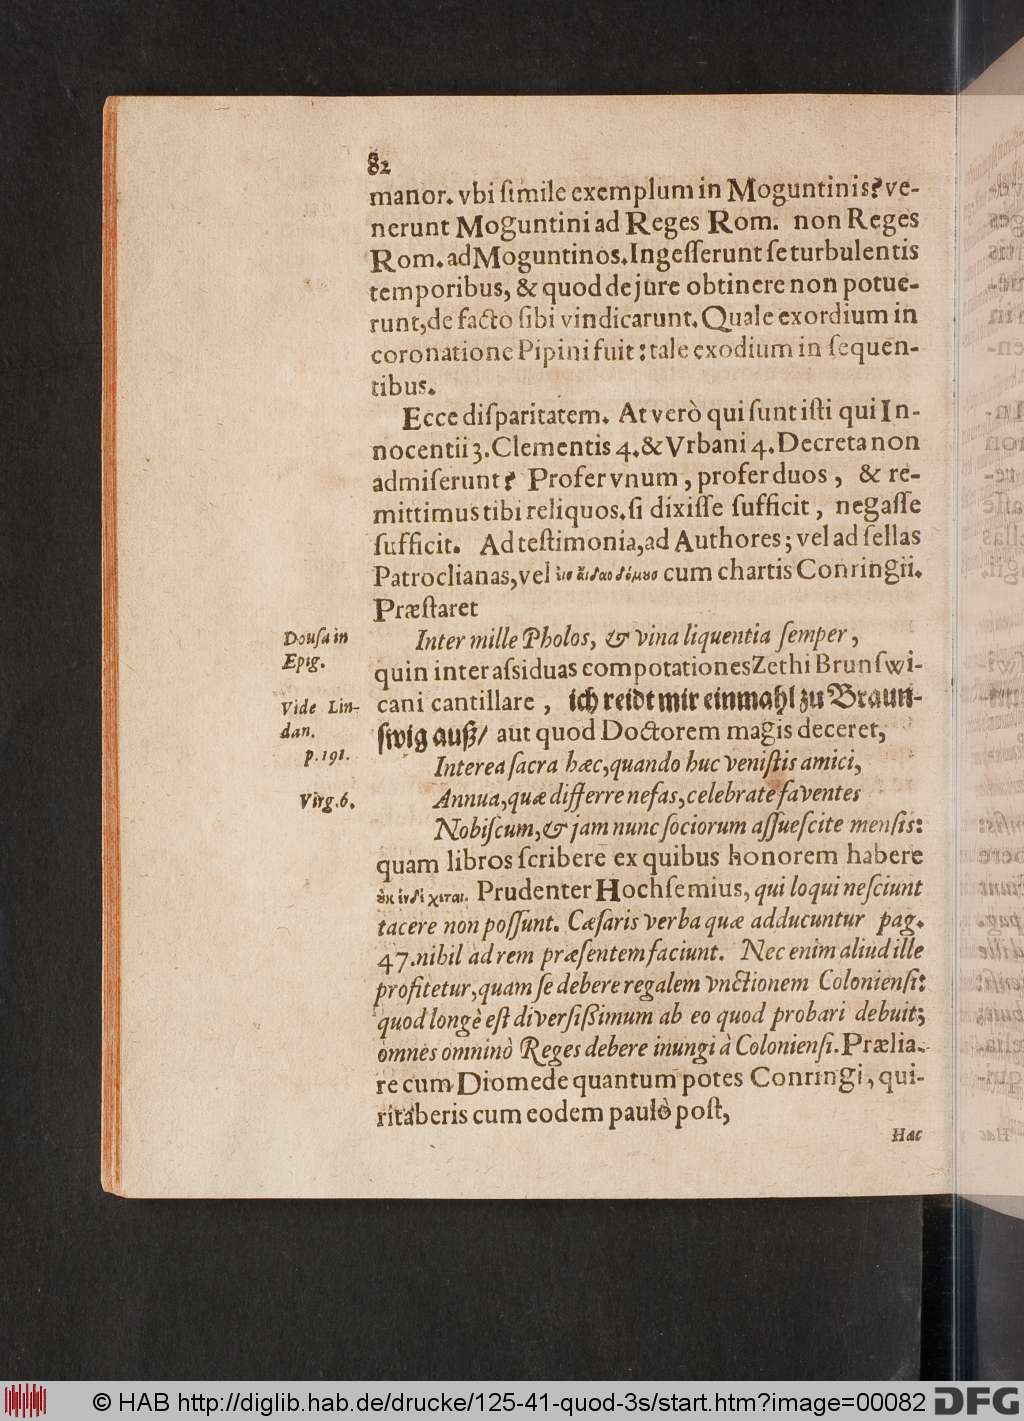 82
manor. vbi ſimile exemplum in Moguntinis? ve-
nerunt Moguntini ad Reges Rom. non Reges
Rom. ad Moguntinos. Ingeſſerunt ſe turbulentis
temporibus, & quod de jure obtinere non potue-
runt, de facto ſibi vindicarunt. Quale exordium in
coronatione Pipini fuit: tale exodium in ſequen-
tibus.
Ecce diſparitatem. At verò qui ſunt iſti qui In-
nocentii 3. Clementis 4. & Vrbani 4. Decreta non
admiſerunt? Profer vnum, profer duos, & re-
mittimus tibi reliquos. ſi dixiſſe ſufficit, negaſſe
ſufficit. Ad teſtimonia, ad Authores; vel ad ſellas
Patroclianas, vel cum chartis Conringii.
Præſtaret
Douſa in
Epig.
Inter mille Pholos, & vina liquentia ſemper,
quin inter aſsiduas compotationes Zethi Brunſwi-
Vide Lin-
dan.
p. 191.
cani cantillare, ich reidt mir einmahl zu Braun-
ſwig auß/ aut quod Doctorem magis deceret,
Interea ſacra hæc, quando huc veniſtis amici,
Virg. 6.
Annua, quæ differre nefas, celebrate faventes
Nobiſcum, & jam nunc ſociorum aſſueſcite menſis:
quam libros ſcribere ex quibus honorem habere
Prudenter Hochſemius, qui loqui neſciunt
tacere non poſſunt. Cæſaris verba quæ adducuntur pag.
47. nibil ad rem præſentem faciunt. Nec enim aliud ille
profitetur, quam ſe debere regalem vnctionem Colonienſi:
quod longè eſt diverſiſsimum ab eo quod probari debuit;
omnes omninò Reges debere inungi à Colonienſi. Prælia-
re cum Diomede quantum potes Conringi, qui-
ritaberis cum eodem paulò poſt,
Hac
© HAB http://diglib.hab.de/drucke/125-41-quod-3s/start.htm?image=00082
DFG